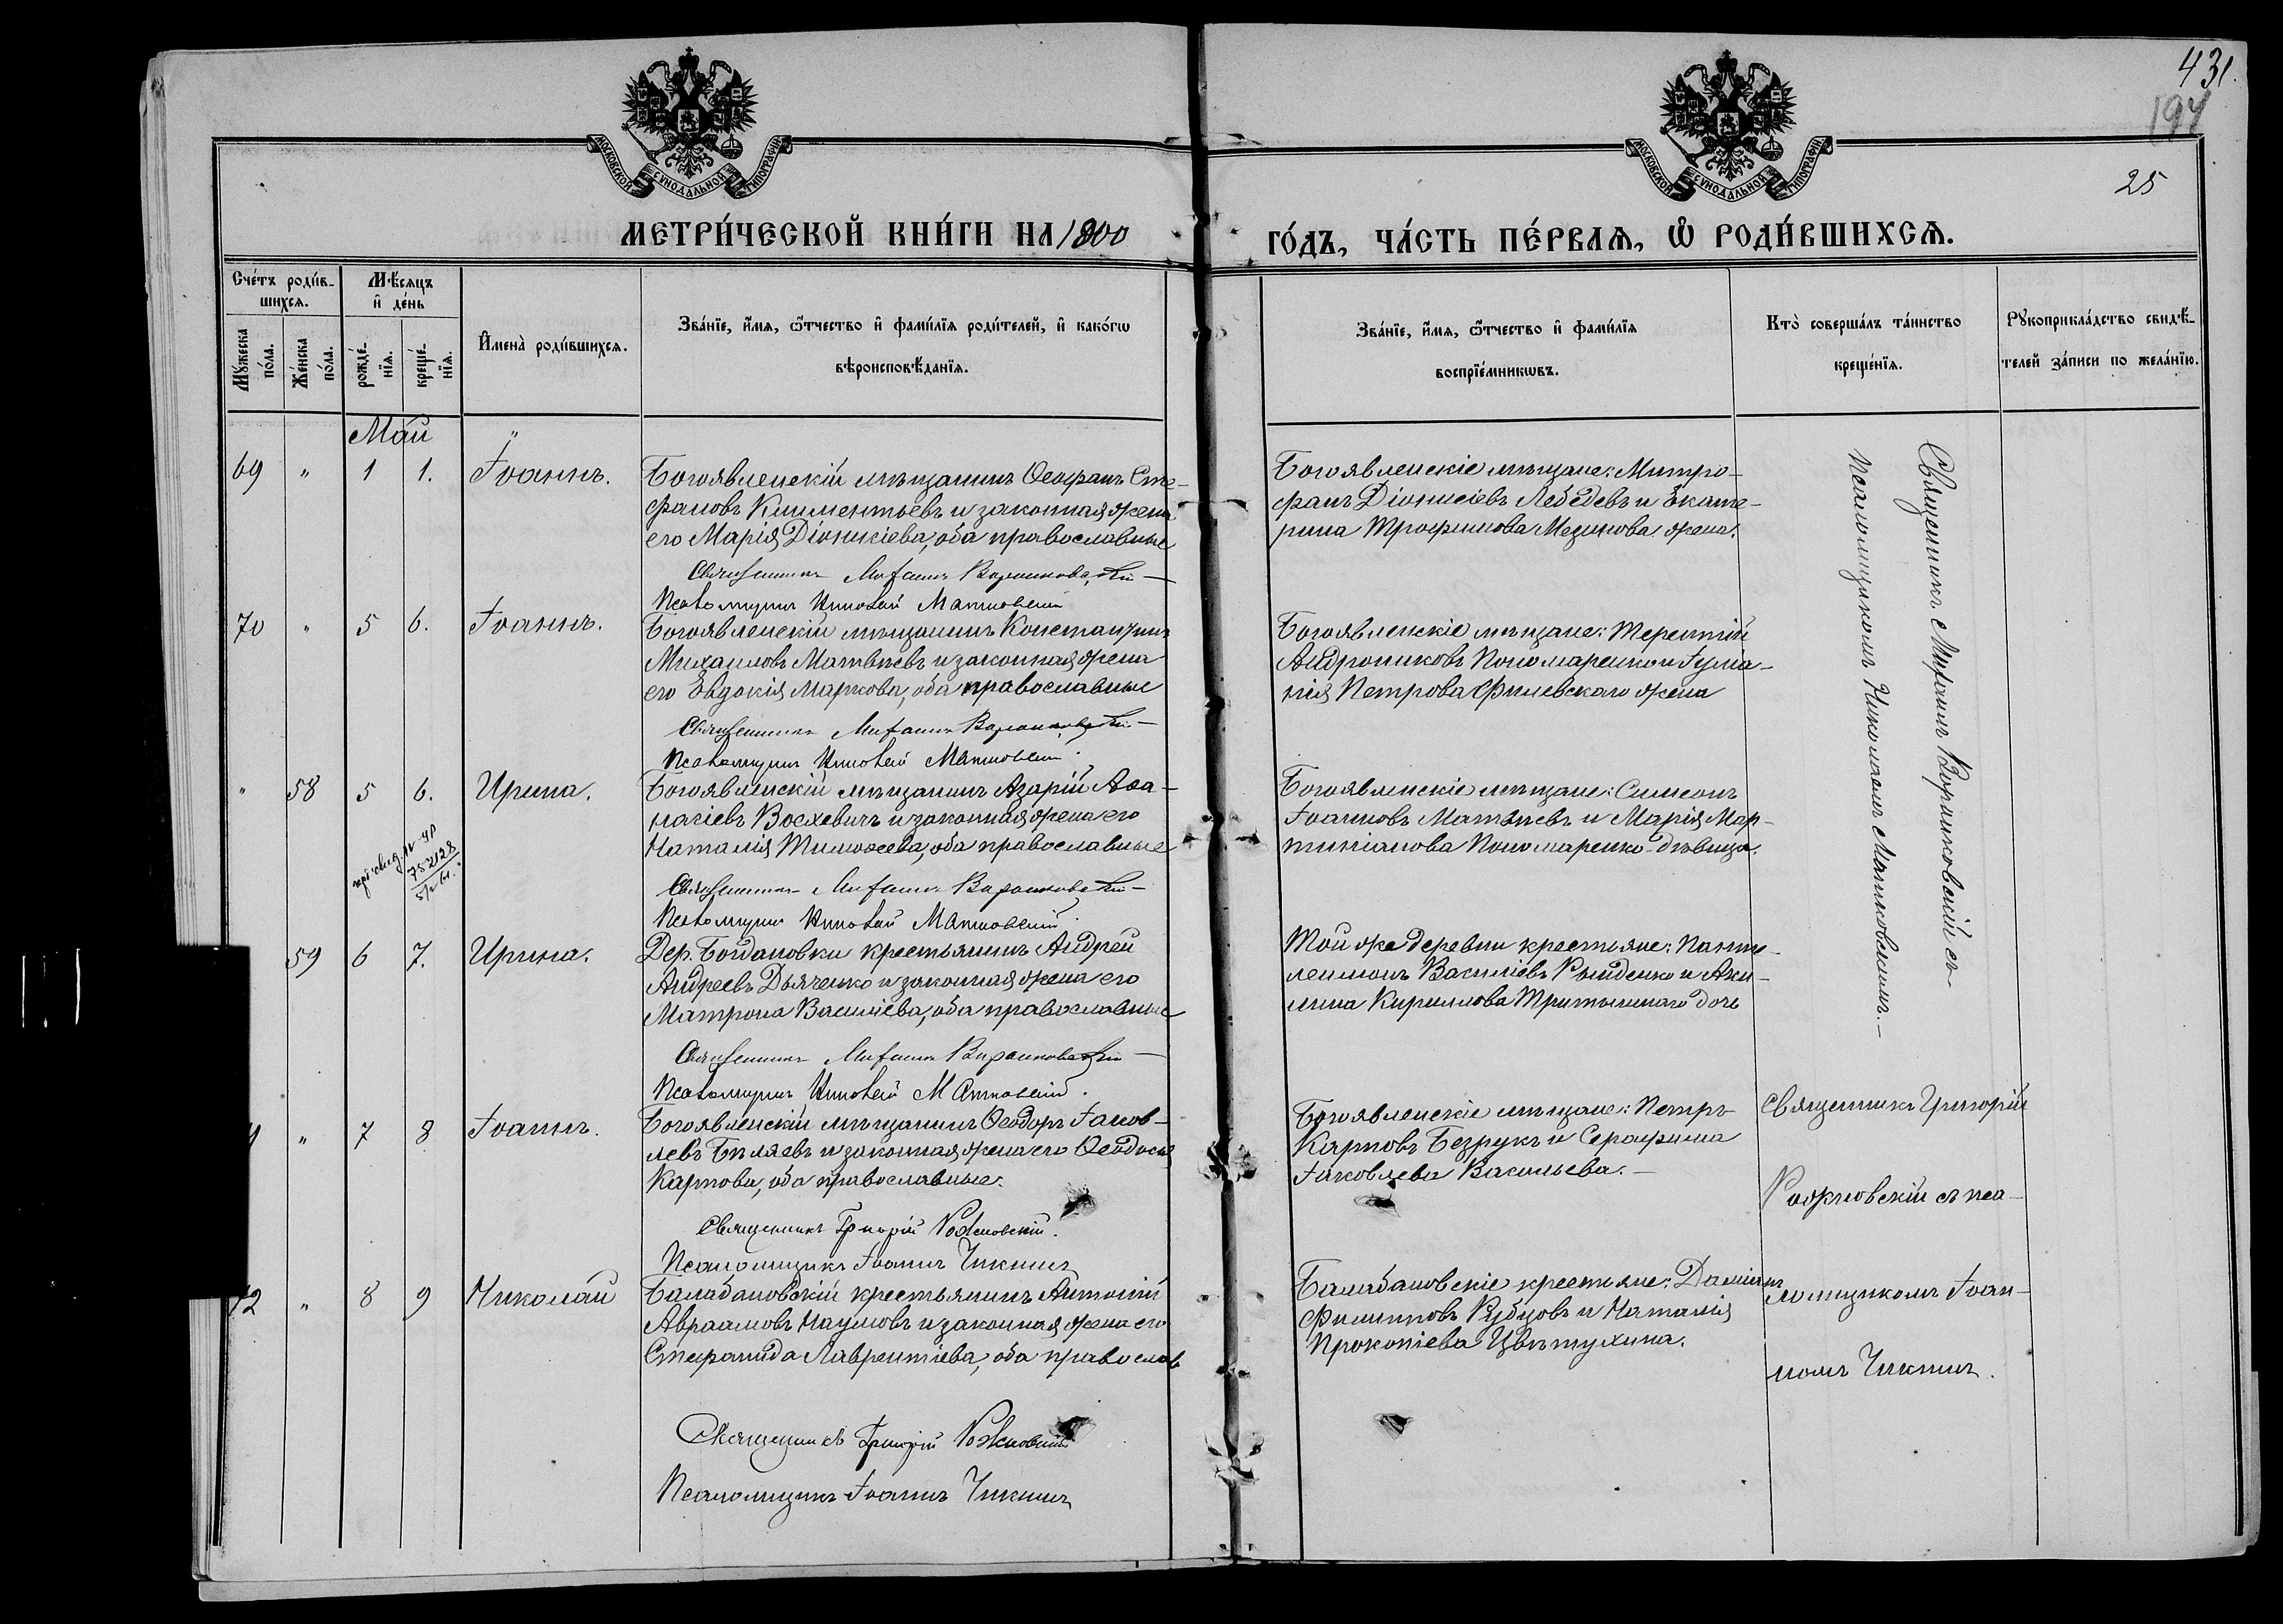 431.
194
25
МОСКОВСКОЙ СѴНОДАЛЬНОЙ ТИПОГРАФІИ
МОСКОВСКОЙ СѴНОДАЛЬНОЙ ТИПОГРАФІИ
МЕТРИ́ЧЕСКОЙ КНИ́ГИ НА 1900
ГО́ДЪ, ЧА́СТЬ ПЕ́РВАѦ, Ѡ РОДИ́ВШИХСѦ.
Сче́тъ роди́в-
шихсѧ.
Мꙋ́жеска по́ла.
Же́нска по́ла.
Мѣ́сѧцъ
и҆ де́нь
рожде́-нїѧ.
креще́-нїѧ.
И҆мена̀ роди́вшихсѧ.
Зва́нїе, и҆́мѧ, ѻ҆́тчество и҆ фами́лїѧ роди́телей, и҆ како́гѡ
вѣроисповѣ́данїѧ.
Зва́нїе, и҆́мѧ, ѻ҆́тчество и҆ фами́лїѧ
воспрїе́мникѡвъ.
Кто̀ соверша́лъ та́инство
креще́нїѧ.
Рꙋкоприкла́дство свидѣ́-
телей за́писи по жела́нїю.
Май "
69 " 1 1. Іоаннъ.
Богоявленскій мѣщанинъ Ѳеофанъ Сте-
фановъ Климентьевъ и законная жена
его Марія Діонисіева, оба православные
Священникъ Михаилъ Воронковскій
Псаломщикъ Николай Матковскій
Богоявленскіе мѣщане: Митро-
фанъ Діонисіевъ Лебедевъ и Екате-
рина Трофимова Мезинова жена.
70 " 5 6. Іоаннъ.
Богоявленскій мѣщанинъ Константинъ
Михаиловъ Матвѣевъ и законная жена
его Евдокія Маркова, оба православные
Священникъ Михаилъ Воронковскій
Псаломщикъ Николай Матковскій
Богоявленскіе мѣщане: Терентій
Андрониковъ Пономаренко и Іулiа-
нія Петрова Филевскаго жена
" 58 5 6. Ирина.
Богоявленскій мѣщанинъ Азарій Аѳа-
насіевъ Восхевичъ и законная жена его
Наталія Тимоѳеева, оба православные
Священникъ Михаилъ Воронковскій
Псаломщикъ Николай Матковскій
Богоявленскіе мѣщане: Симеонъ
Іоанновъ Матвѣевъ и Марія Мар-
тиніанова Пономаренко дѣвица.
752128
59 6 7. Ирина.
Дер. Богдановки крестьянинъ Андрей
Андреевъ Дьяченко и законная жена его
Матрона Василіева, оба православные
Священникъ Михаилъ Воронковскій
Псаломщикъ Николай Матковскій.
Той же деревни крестьяне: Панте-
леимонъ Василіевъ Рыиденко и Аки-
лина Кириллова Тритычнаго дочь
Священникъ Михаилъ Воронковскій съ
псаломщикомъ Николаемъ Матковскимъ.
" 7 8 Іоаннъ.
Богоявленскій мѣщанинъ Ѳеодоръ Іаков-
левъ Бѣляевъ и законная жена его Ѳеодосія
Карпова, оба православные.
Священникъ Григорій Рожновскій.
Псаломщикъ Іоаннъ Чикинъ
Богоявленскіе мѣщане: Петръ
Карповъ Безрукъ и Серафима
Іаковлева Васильева.
72 " 8 9 Николай
Балабановскій крестьянинъ Антоній
Авраамовъ Наумовъ и законная жена его
Стефанида Лаврентіева, оба православ
Священникъ Григорій Рожновскій
Псаломщикъ Іоаннъ Чикинъ
Балабановскіе крестьяне: Даміанъ
Филипповъ Рубцовъ и Наталія
Прокопіева Цвѣтухина.
Священникъ Григорій
Рожновскій съ пса-
ломщикомъ Іоан-
номъ Чикинъ.